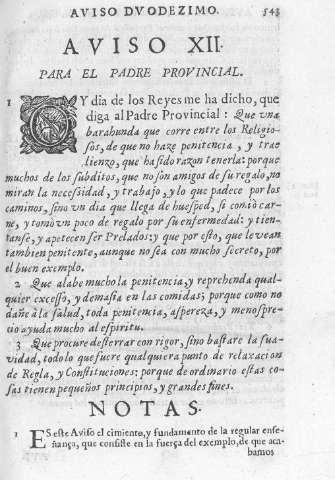 AVISO DVODEZIMO. 543
AVISO XII.
PARA EL PADRE PROVINCIAL.
1 OY dia de los Reyes me ha dicho, que
diga al Padre Provincial: Que vna
barahunda que corre entre los Religio-
sos, de que no haze penitencia, y trae
lienzo, que ha sido razon tenerla: porque
muchos de los subditos, que son amigos de su regalo, no
miran la necessidad, y trabajo, y lo que padece por los
caminos, sino vn dia que llega de huesped, si comiò car-
ne, y tomò vn poco de regalo por su enfermedad: y tien-
tanse, y apetecen ser Prelados: y que por esto, que le vean
tambien penitente, aunque no sea con mucho secreto, por
el buen exemplo.
2 Que alabe mucho la penitencia, y reprehenda qual-
quier excesso, y demasìa en las comidas; porque como no
dañe à la salud, toda penitencia, aspereza, y menospre-
cio ayuda mucho al espiritu.
3 Que procure desterrar con rigor, sino bastare la sua-
vidad, todo lo que sucre qualquiera punto de relaxacion
de Regla, y Constituciones: porque de ordinario estas co-
sas tienen pequeños principios, y grandes fines.
NOTAS.
1 ES este Aviso el cimiento, y fundamento de la regular ense-
ñança, que consiste en la fuerça del exemplo, de que aca-
bamos